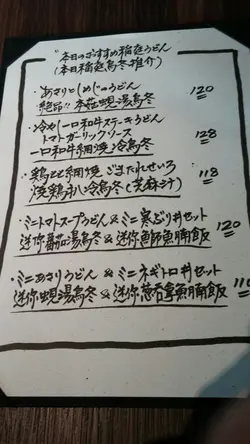 本日のおすすめ稲庭うどん
(本日稲庭烏冬推介)
・あさりとしめじのうどん 120
絶品!! 本菇蜆湯烏冬
・冷やし一口和牛ステーキうどん
トマトガーリックソース 128
一口和牛網焼冷烏冬
・鶏もも網焼ごまだれせいろ 118
焼鶏扒冷烏冬(芝麻汁)
・ミニトマトスープうどん&ミニ寒ぶり丼セット 120
迷你蕃茄湯烏冬&迷你鰤魚腩飯
・ミニあさりうどん & ミニネギトロ丼セット 110
迷你蜆湯烏冬&迷你葱吞拿魚腩飯